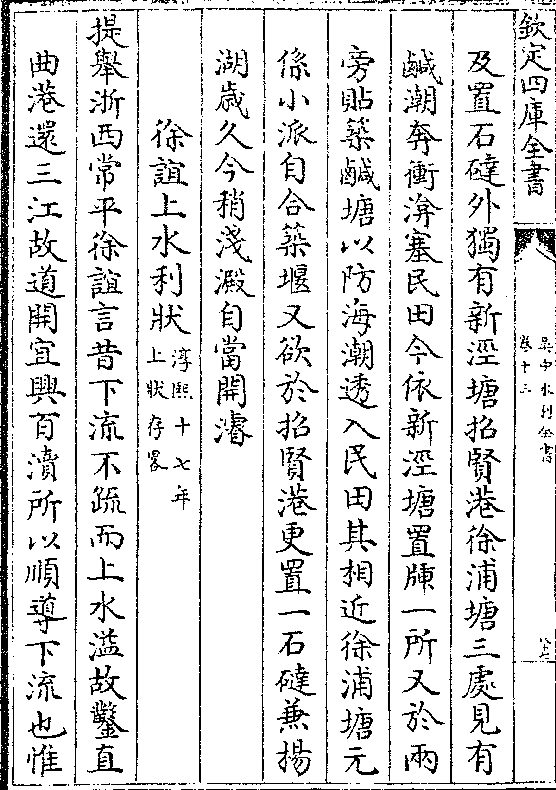 欽定四庫全書
吳中水利全書
卷十三
及置石䃮外獨有新涇塘招賢港徐浦塘三處見有
鹹潮奔衝渰塞民田今依新涇塘置牐一所又於兩
旁貼築鹹塘以防海潮透入民田其相近徐浦塘元
係小派自合築堰又欲於招賢港更置一石䃮兼揚
湖歲久今稍淺澱自當開濬
徐誼上水利狀淳熙十七年上狀存畧
提舉浙西常平徐誼言昔下流不疏而上水溢故鑿直
曲港還三江故道開宜興百瀆所以順導下流也惟